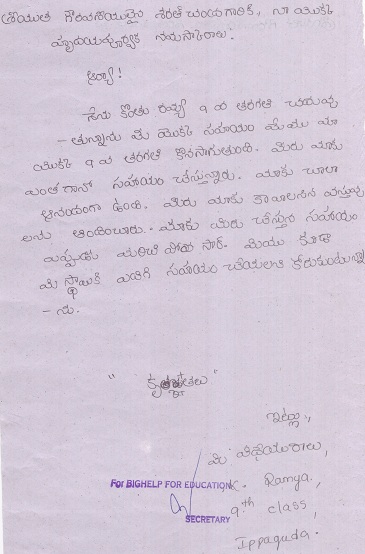 శ్రీయుత గౌరవనీయులైన శరత్ చంద్ర గారికి, నా యొక్క
హృదయపూర్వక నమస్కారాలు.
ఆర్యా!
నేను కొంతం రమ్య 9 వ తరగతి చదువు
- తున్నాను మీ యొక్క సహాయం మేము మా
యొక్క 9 వ తరగతి కొనసాగుతుంది. మీరు మాకు
ఎంతగానో సహాయం చేస్తున్నారు. మాకు చాలా
ఆనందంగా ఉంది. మీరు మాకు కావాలసిన వస్తువు
లను అందించారు. మాకు మీరు చేస్తున్న సహాయం
ఎప్పుడు మరిచి పోము సార్. మేము కూడా
మీ స్థాయికి ఎదిగి సహాయం చేయాలని కోరుకుంటున్నా
- ను.
" కృతజ్ఞతలు "
ఇట్లు,,
మీ విధేయురాలు,
For BIGHELP FOR EDUCATION K. Ramya.,
9th class,
SECRETARY
Ippaguda.